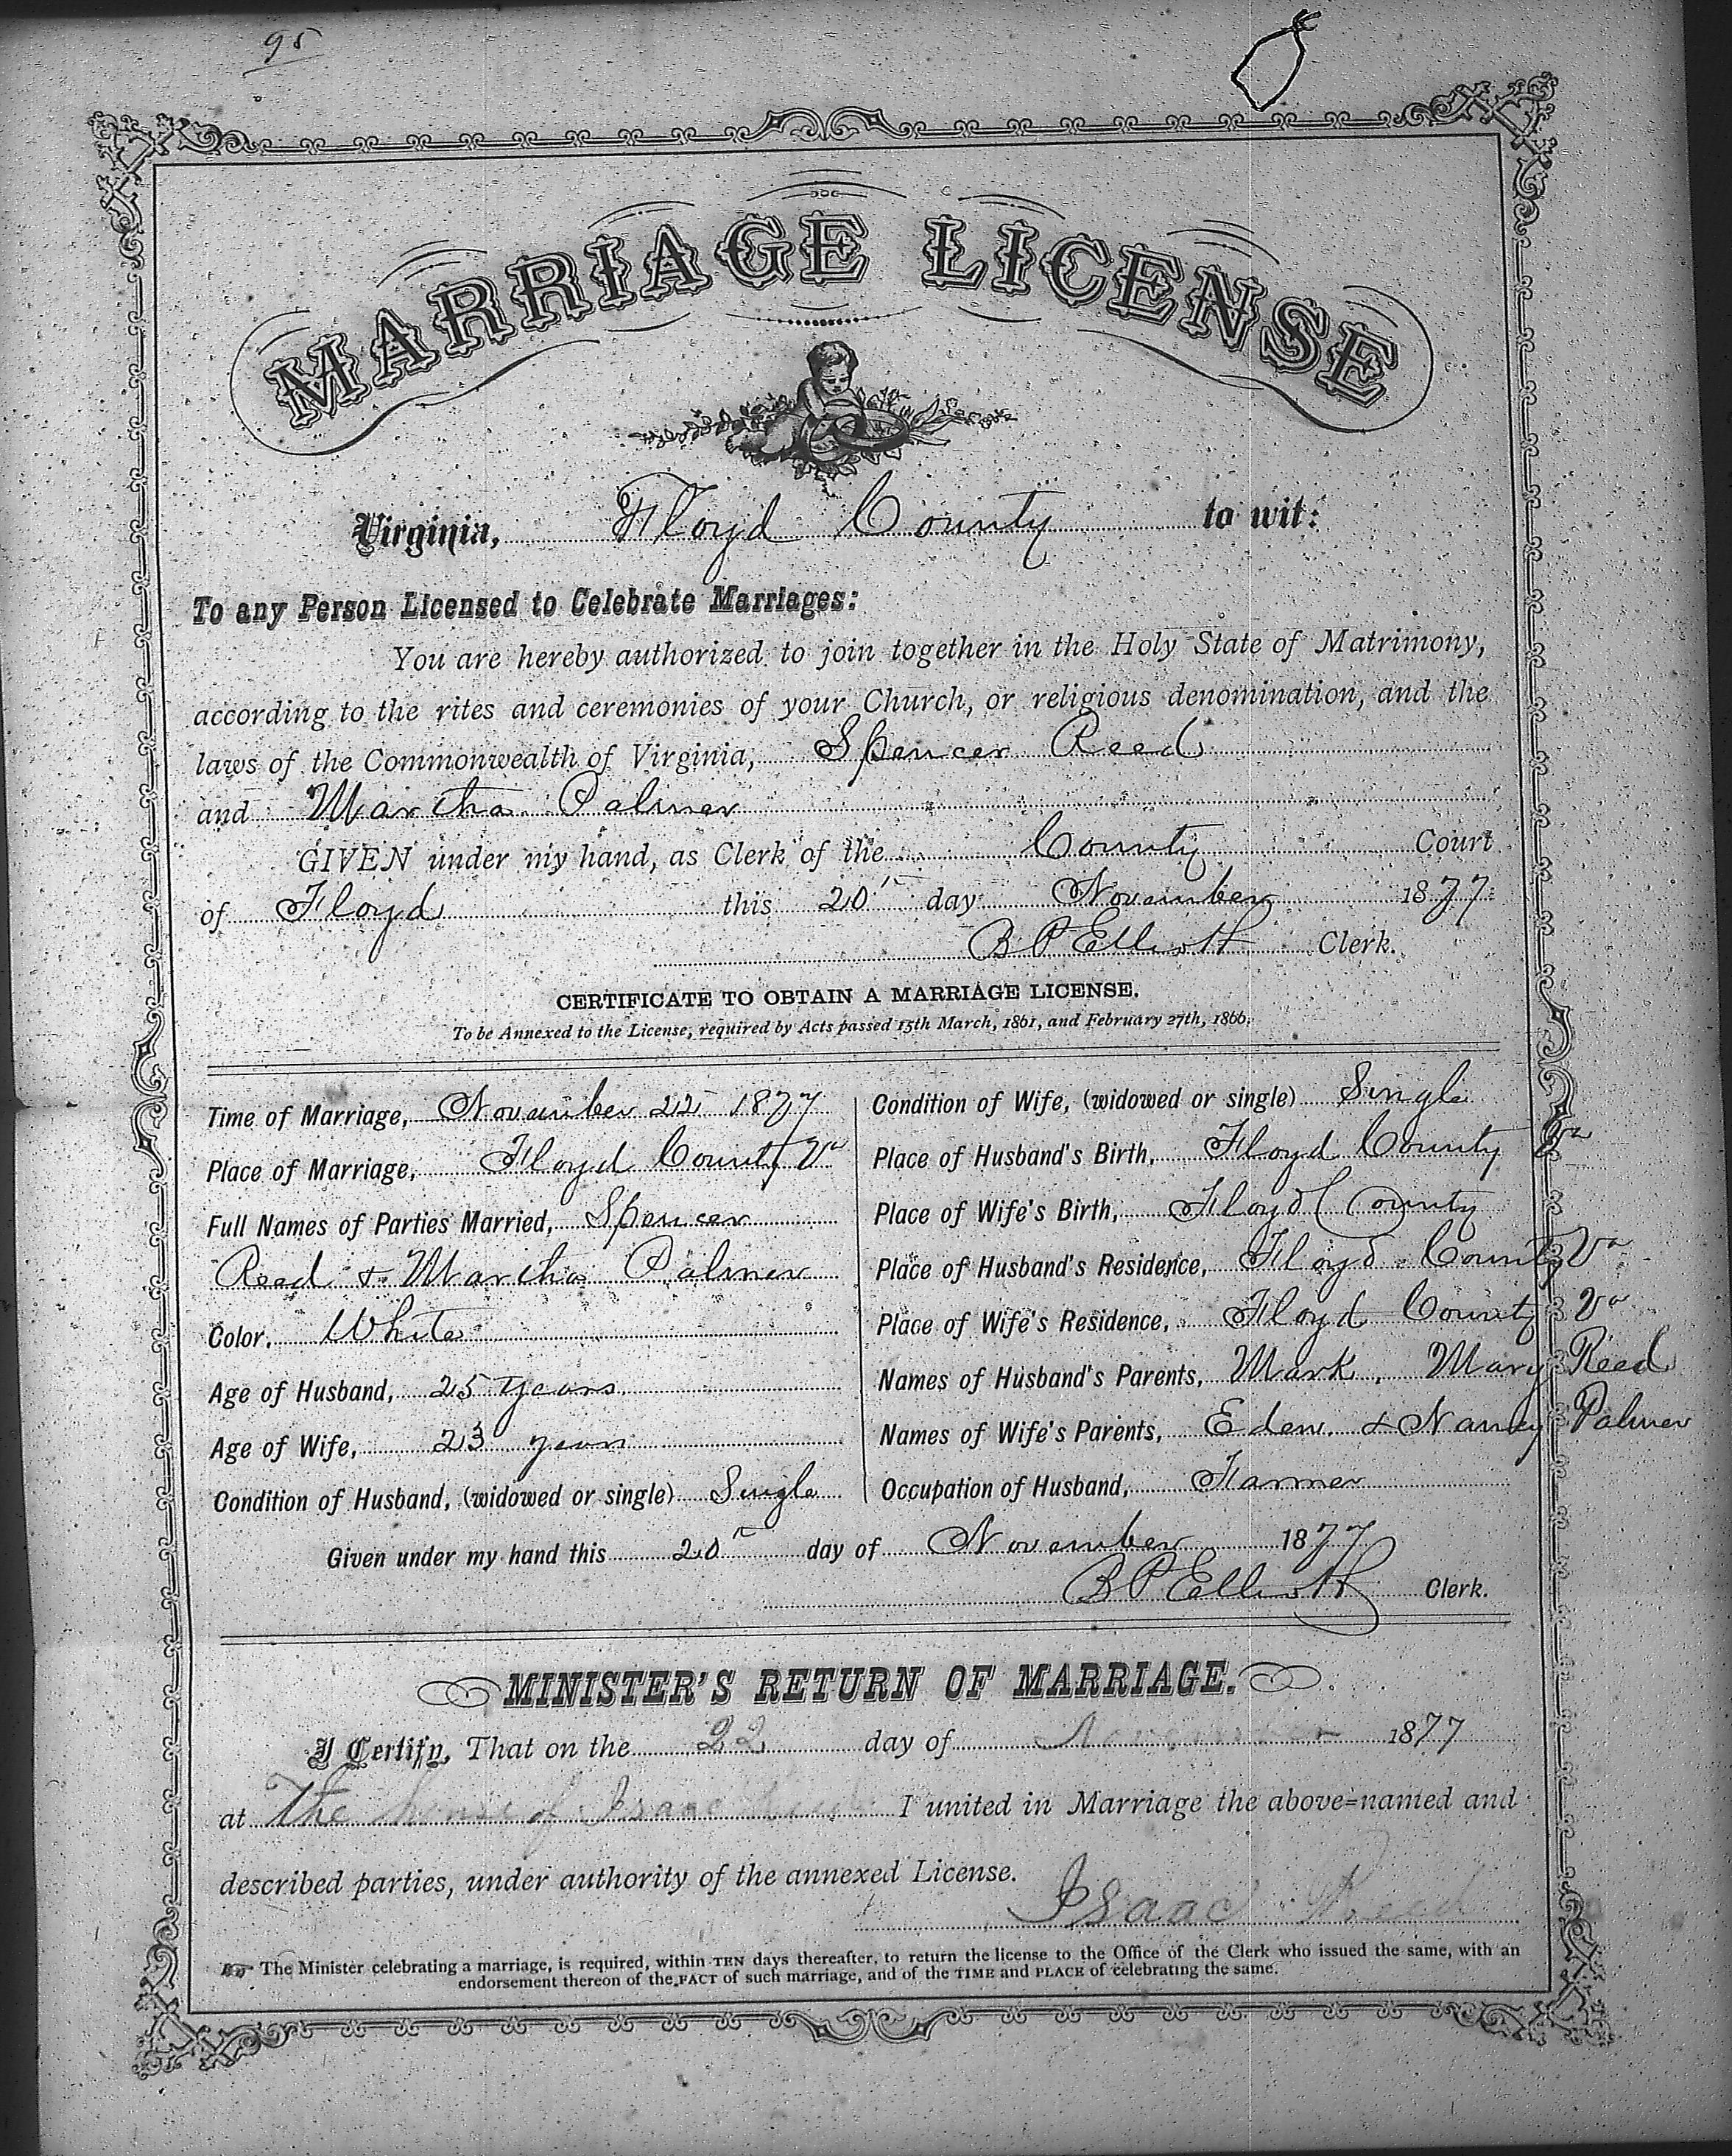 95
MARRIAGE LICENSE
Virginia, Floyd County to wit:
To any Person Licensed to Celebrate Marriages:
You are hereby authorized to join together in the Holy State of Matrimony,
according to the rites and ceremonies of your Church, or religious denomination, and the
laws of the Commonwealth of Virginia, Spencer Reed
and Martha Palmer
GIVEN under my hand, as Clerk of the County Court
of Floyd this 20" day November 1877
B P Elliott Clerk.
CERTIFICATE TO OBTAIN A MARRIAGE LICENSE.
To be Annexed to the License, required by Acts passed 15th March, 1861, and February 27th, 1866.
Time of Marriage, November 22 1877
Place of Marriage, Floyd County Va
Full Names of Parties Married, Spencer
Reed & Martha Palmer
Color, White
Age of Husband, 25 years
Age of Wife, 23 years
Condition of Husband, (widowed or single) Single
Condition of Wife, (widowed or single) Single
Place of Husband's Birth, Floyd County Va
Place of Wife's Birth, Floyd County
Place of Husband's Residence, Floyd County Va
Place of Wife's Residence, Floyd County Va
Names of Husband's Parents, Mark, Mary Reed
Names of Wife's Parents, Eden & Nancy Palmer
Occupation of Husband, Farmer
Given under my hand this 20" day of November 1877
B P Elliott Clerk.
MINISTER'S RETURN OF MARRIAGE.
I Certify, That on the 22 day of November 1877
at The house of Isaac I united in Marriage the above=named and
described parties, under authority of the annexed License.
Isaac Reed
The Minister celebrating a marriage, is required, within TEN days thereafter, to return the license to the Office of the Clerk who issued the same, with an
endorsement thereon of the FACT of such marriage, and of the TIME and PLACE of celebrating the same.